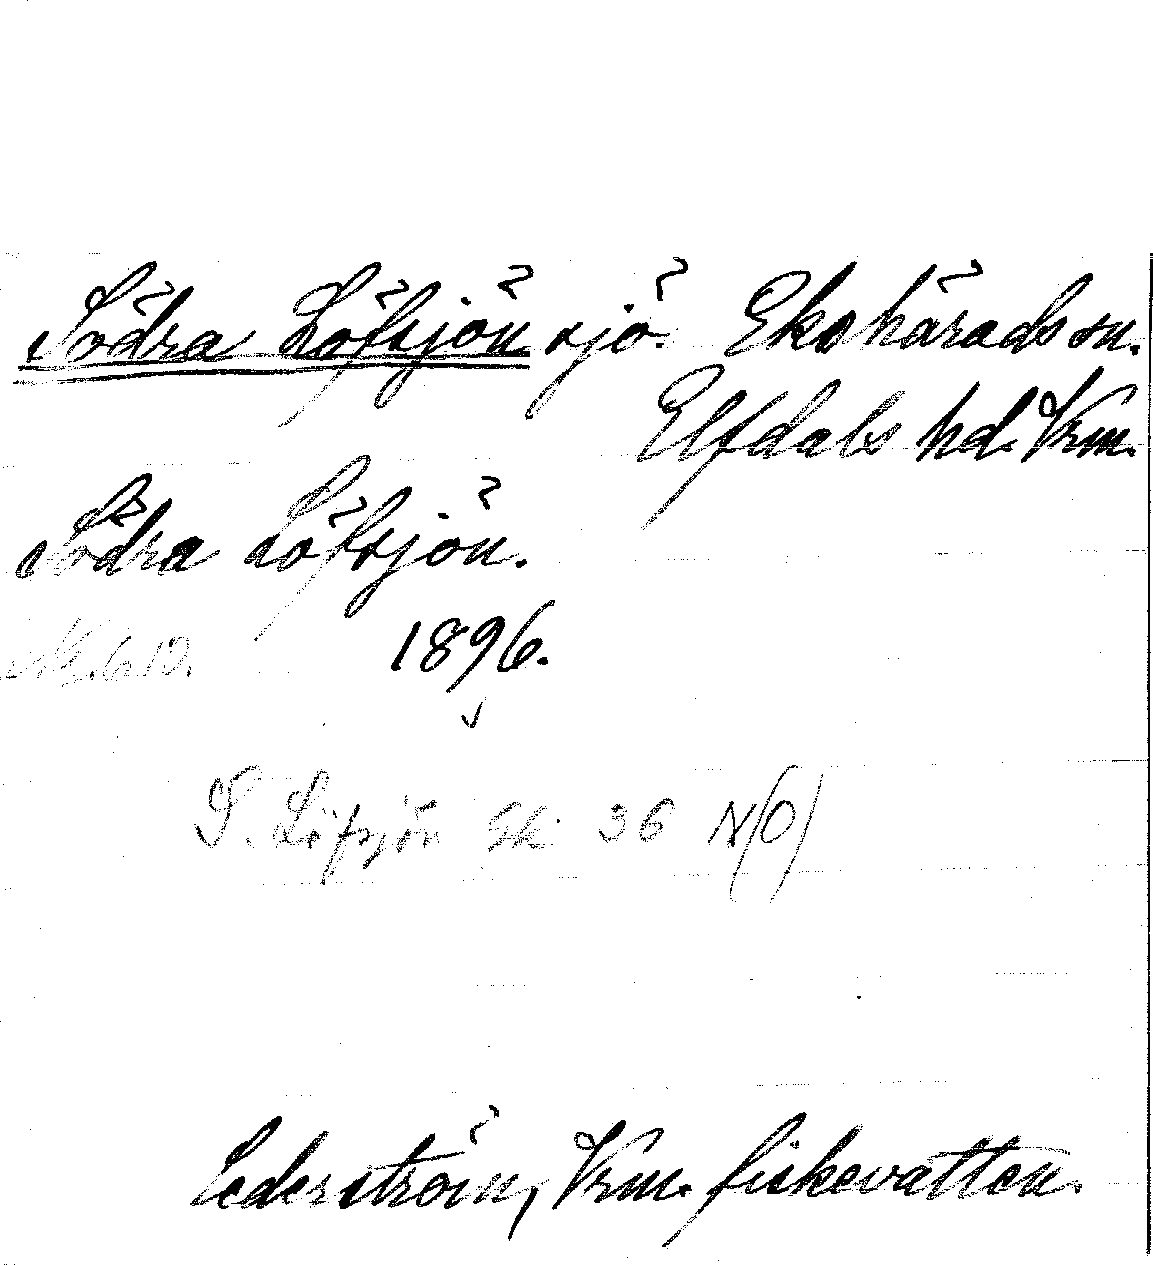 Södra Löfsjön sjö. Ekshärads sn.
Elfdals hd. Vrm.
Södra Löfsjön.
1896.
S. Löfsjön Gk. 36 N(O)
Cederström, Vrm. fiskevatten.